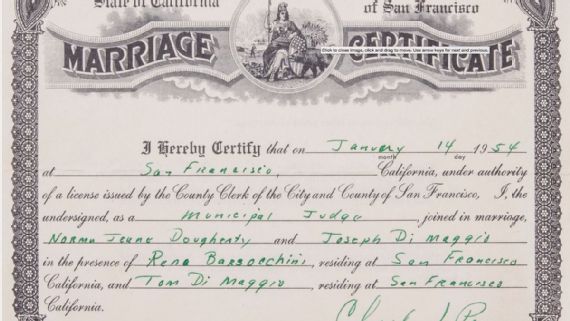 State of California of San Francisco
MARRIAGE CERTIFICATE
Click to close image, click and drag to move. Use arrow keys for next and previous.
I Hereby Certify that on January 14 1954
month day
at San Francisco, California, under authority
of a license issued by the County Clerk of the City and County of San Francisco, I, the
undersigned, as a Municipal Judge, joined in marriage,
Norma Jeane Dougherty and Joseph Di Maggio
in the presence of Reno Barsocchini, residing at San Francisco
California, and Tom Di Maggio, residing at San Francisco
California.